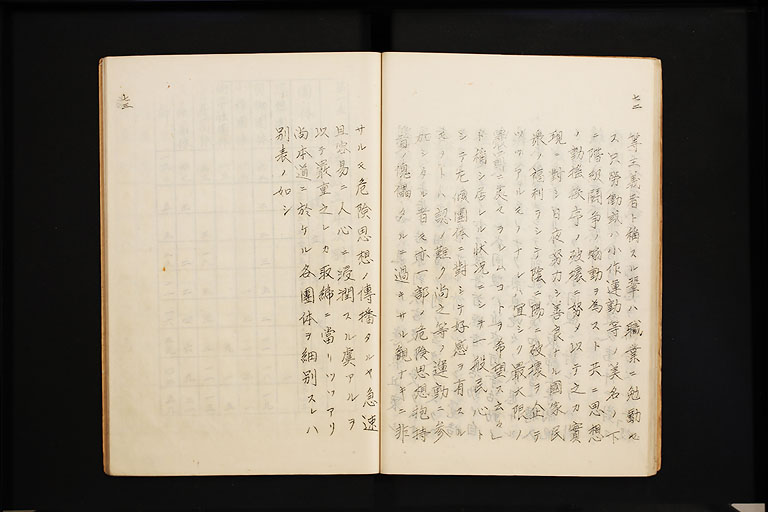 七二
等主義者ト稱スル輩ハ職業ニ勉勵セ
ス只勞働爭小作運動等ノ美名ノ下
ニ階級鬪爭ノ煽動ヲ為スト共ニ思想
ノ動搖秩序ノ破壞ニ努メ以テ之カ實
現ニ對シ日夜努力シ善良ナル國家民
衆ノ權利ヲシテ陰ニ陽ニ破壞ヲ企テ
ツツアルモノナレハ宜シク最大限ノ
コトヲ希望ス云々」
ト稱シ居レル狀況ニシテ一般民心ト
シテ左傾團体ニ對シテ好感ヲ有スル
モノト認メ難ク尚之等ノ運動ニ參
加シタル者モ亦一部ノ危險思想抱持
者ノ傀儡タルニ過キサル觀ナキニ非
七三
サルモ危險思想ノ傳播タルヤ急速
且容易ニ人心ニ浸潤スル虞アルヲ
以テ嚴重之レカ取締ニ當リツツアリ
尚本道ニ於ケル各團体ヲ細別スレハ
別表ノ如シ